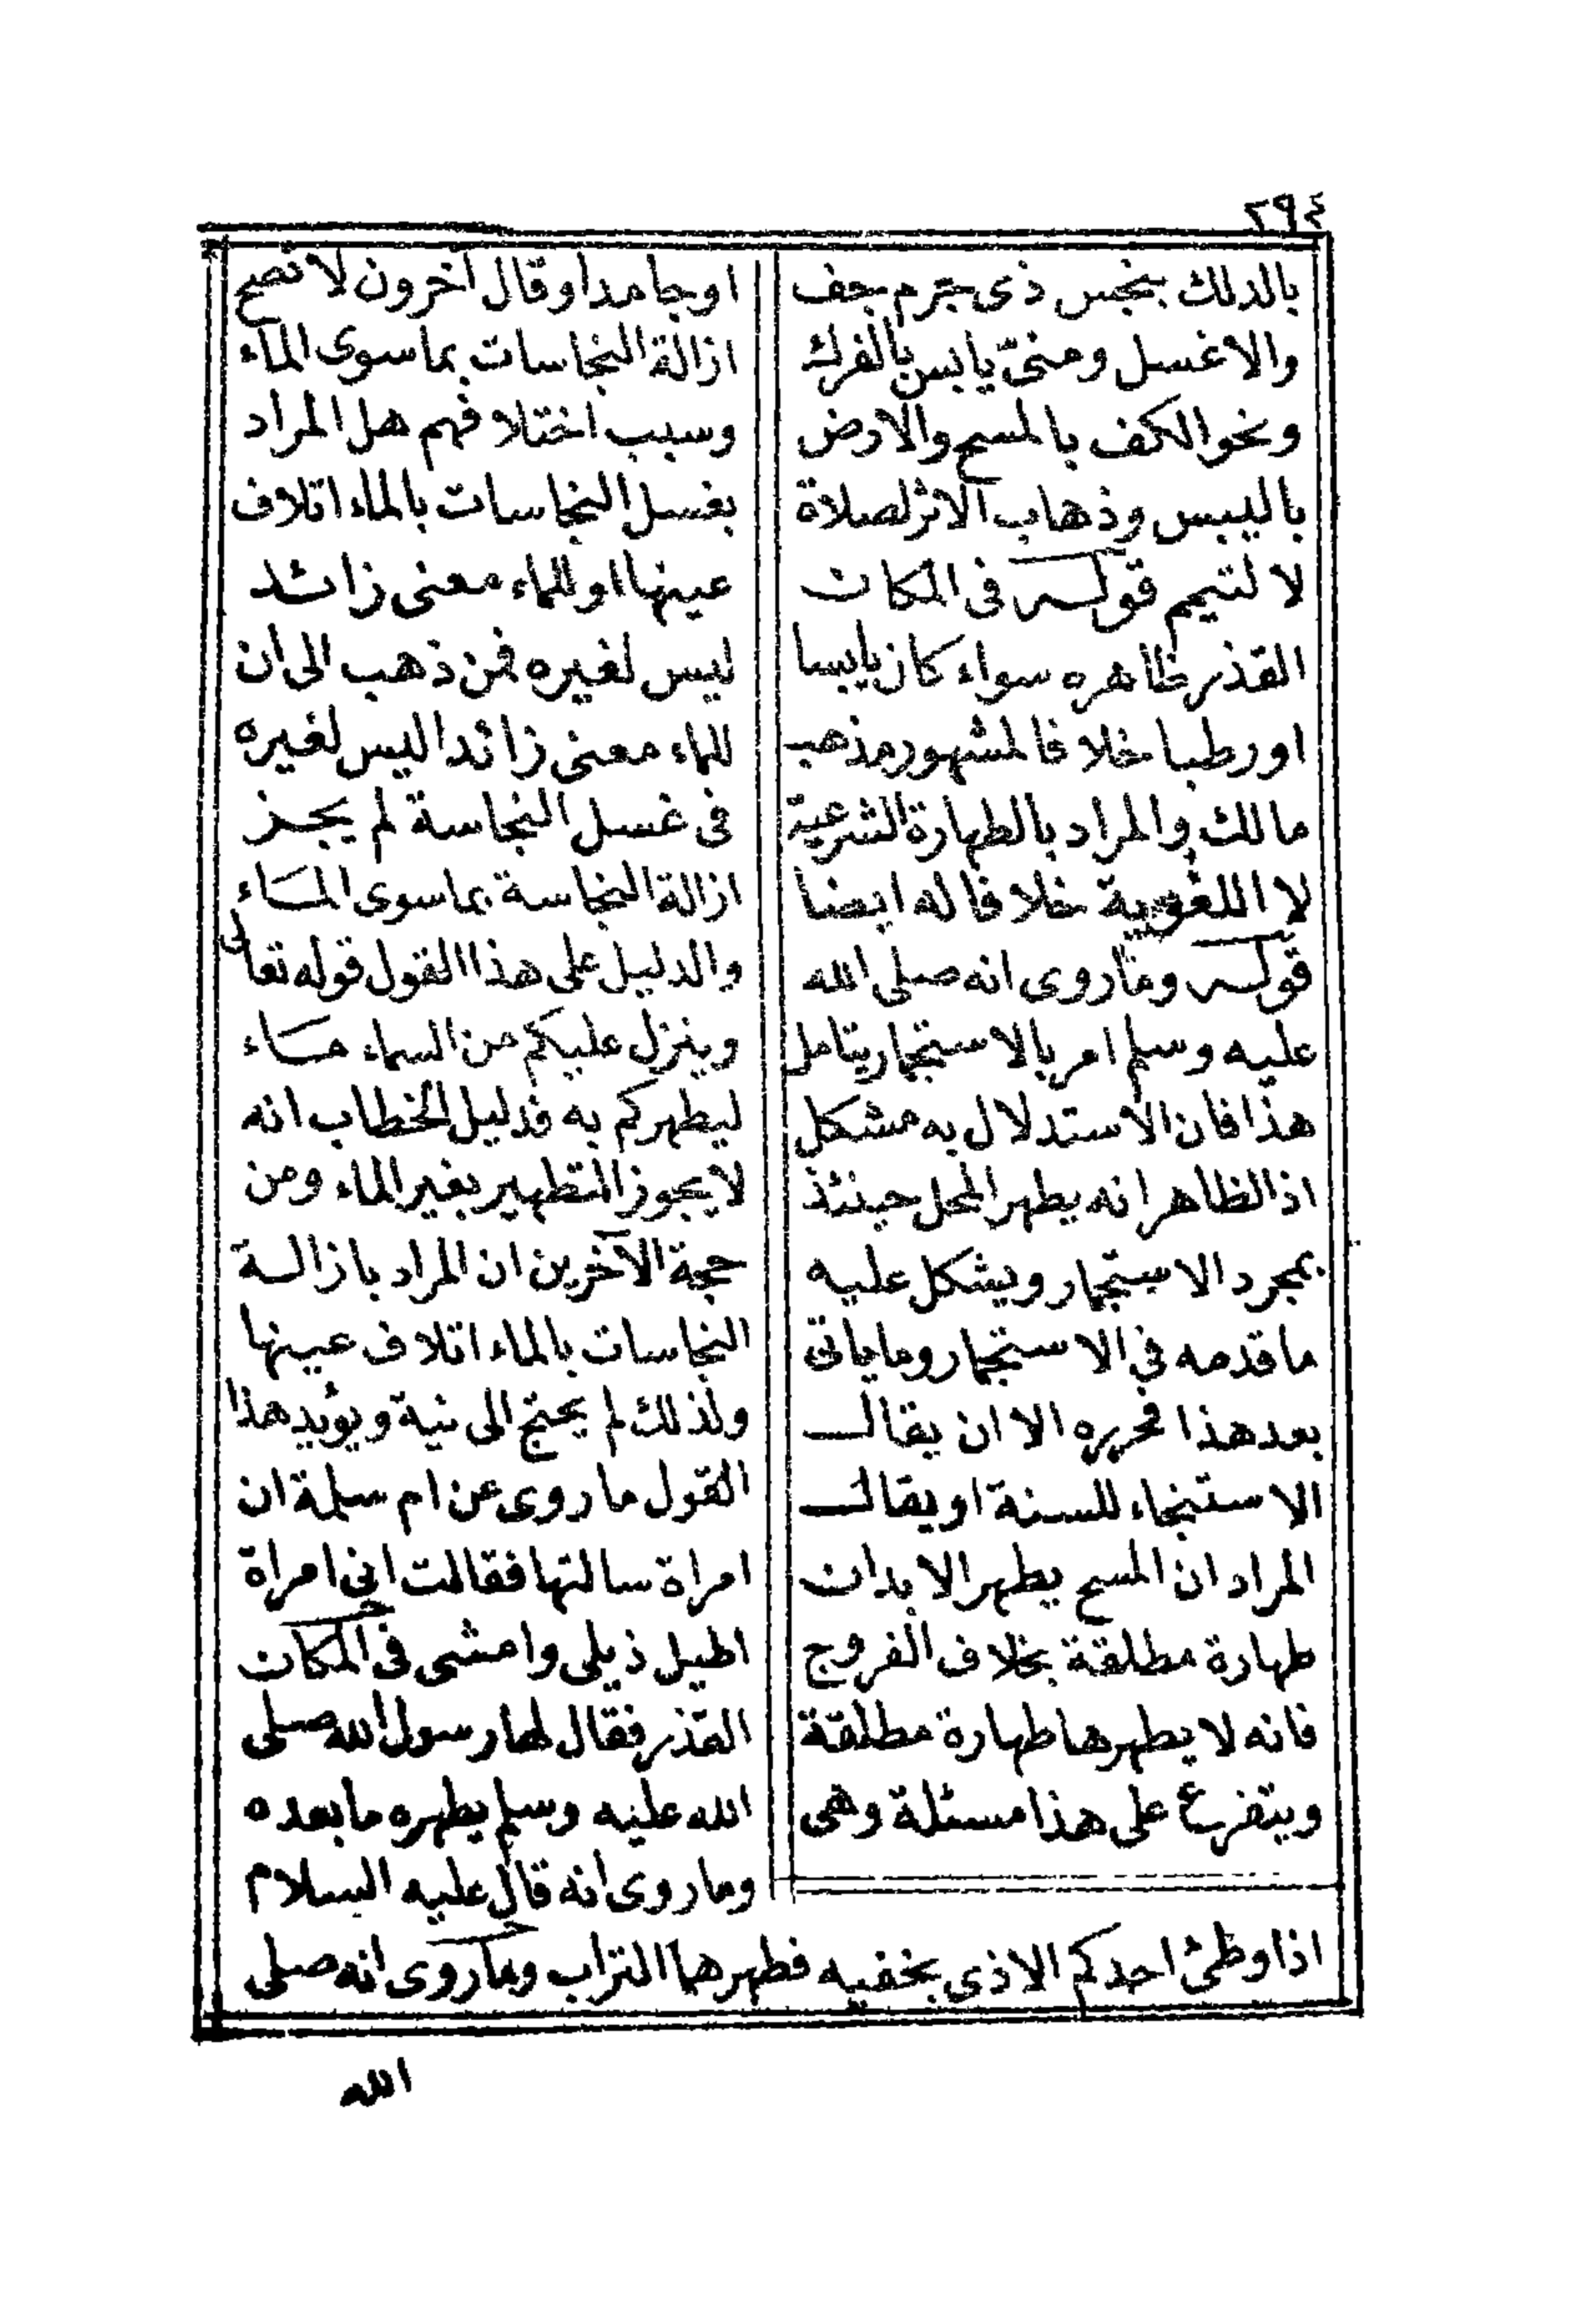 ٢٩٤
بالدلك بنجس ذى جرم جف
والا غسل ومنىّ يابس بالفرك
ونحو الكف بالمسح والارض
باليبس وذهاب الاثر لصلاة
لا لتيمم قوله فى المكان
القذر ظاهره سواء كان يابسا
او رطبا خلافا لمشهور مذهب
مالك والمراد بالطهارة الشرعية
لا اللغوية خلافا له ايضا
قوله وما روى انه صلى الله
عليه وسلم امر بالاستجمار يتامل
هذا فان الاستدلال به مشكل
اذ الظاهر انه يطهر المحل حينئذ
بمجرد الاستجمار ويشكل عليه
ما قدمه في الاستجمار وما ياتى
بعد هذا فحرره الا ان يقال
الاستنجاء للسنة او يقال
المراد ان المسح يطهر الابدان
طهارة مطلقة بخلاف الفروج
فانه لا يطهرها طهارة مطلقة
ويتفرع على هذا مسئلة وهى
او جامدا وقال آخرون لا تصح
ازالة النجاسات بما سوى الماء
وسبب اختلافهم هل المراد
بغسل النجاسات بالماء اتلاف
عينها او للماء معنى زائد
ليس لغيره فمن ذهب الى ان
للماء معنى زائدا ليس لغيره
فى غسل النجاسة لم يجز
ازالة النجاسة بما سوى الماء
والدليل على هذا القول قوله تعالى
وينزل عليكم من السماء ماء
ليطهركم به فدليل الخطاب انه
لا يجوز التطهير بغير الماء ومن
حجة الآخرين ان المراد بازالة
النجاسات بالماء اتلاف عينها
ولذلك لم يحتج الى نية ويؤيد هذا
القول ما روى عن ام سلمة ان
امراة سالتها فقالت انى امراة
اطيل ذيلى وامشى فى المكان
القذر فقال لها رسول الله صلى
الله عليه وسلم يطهره ما بعده
وما روى انه قال عليه السلام
اذا وطئ احدكم الاذى بخفيه فطهرهما التراب وما روى انه صلى
الله